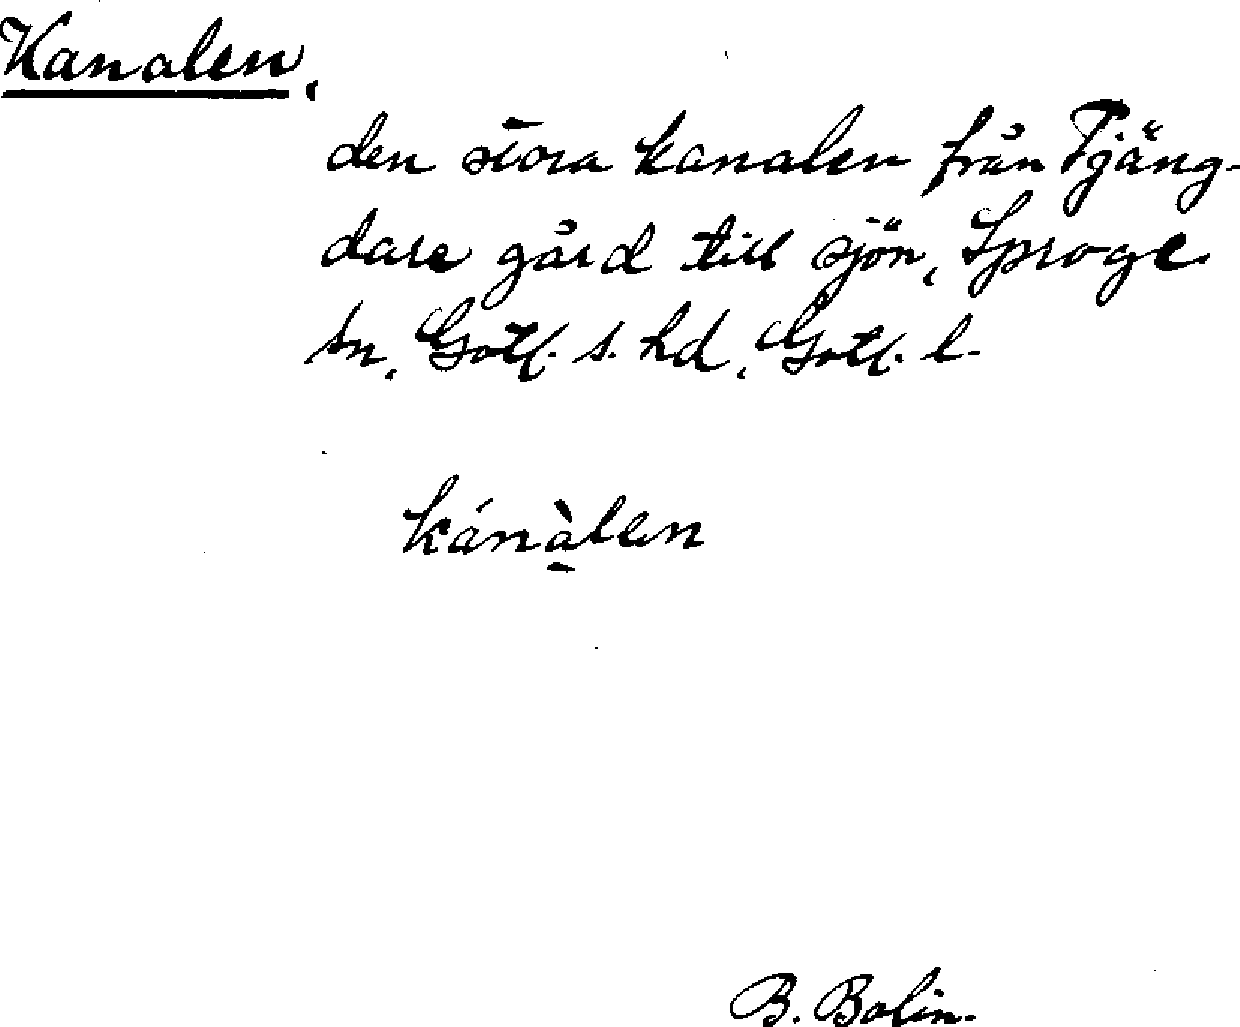 Kanalen,
den stora kanalen från Pjäng-
dare gård till sjön, Sproge
sn, Gotl. s. hd, Gotl. l.
kánàlen
B. Bolin.